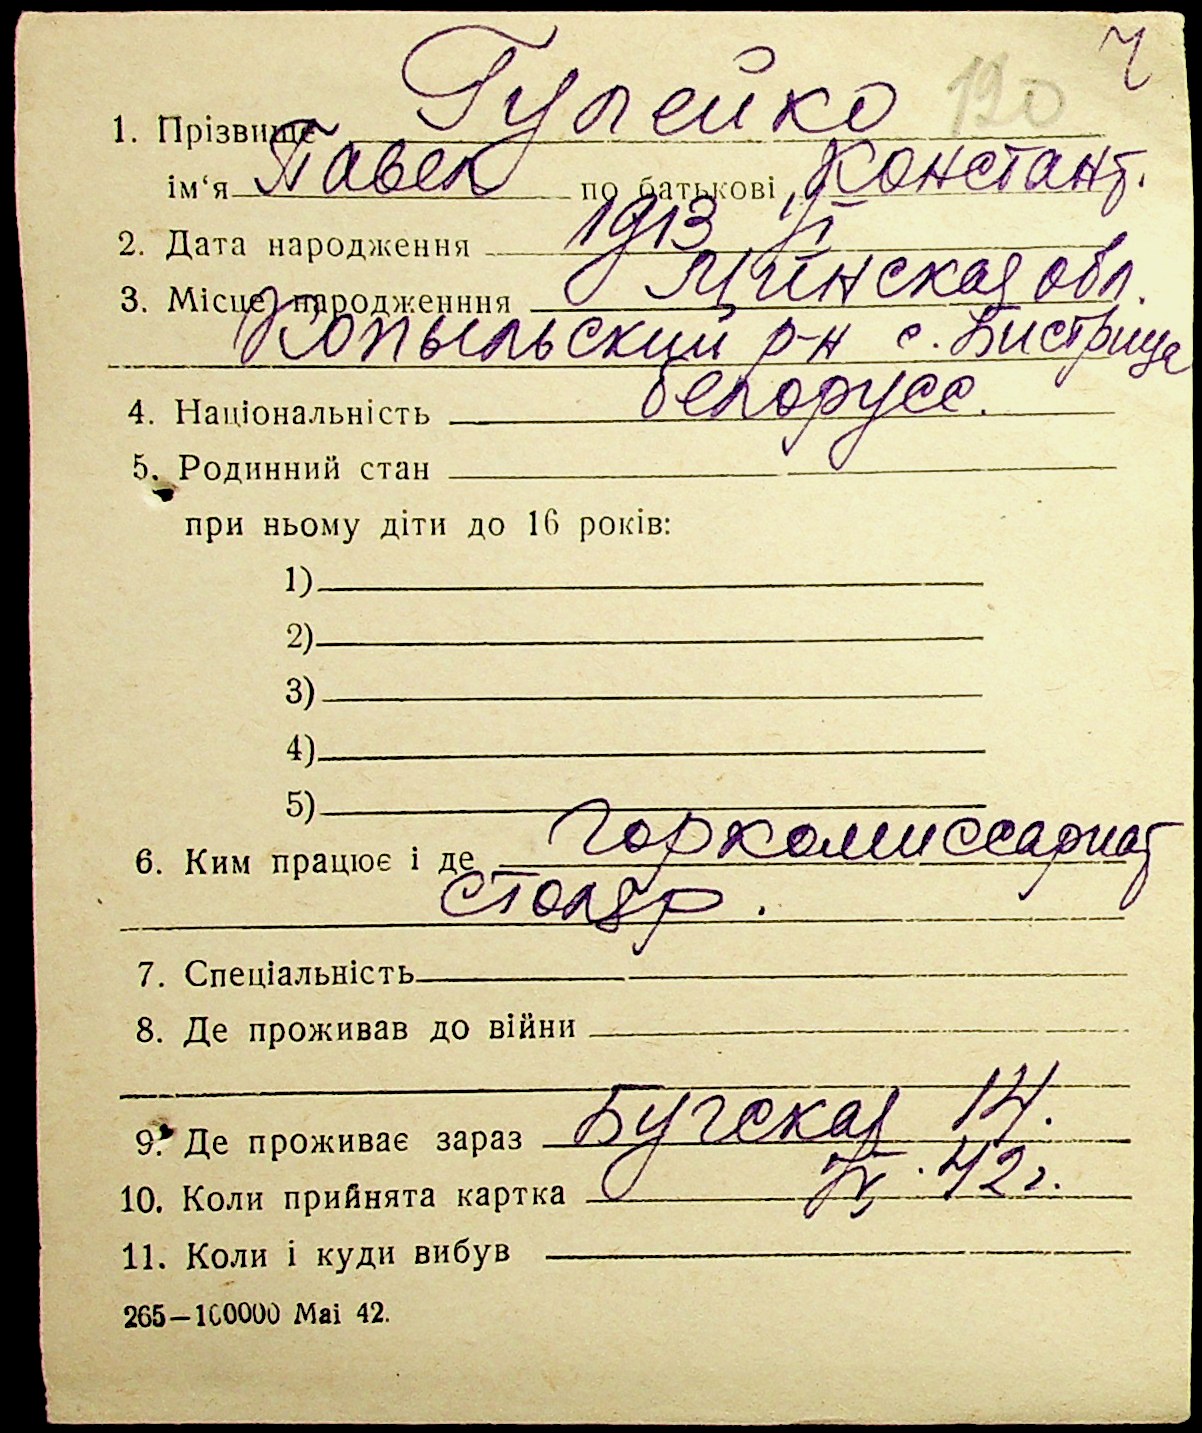 Ч
120
1. Прізвище Гулейко
ім‘я Павел по батькові Констант.
2. Дата народження 1913
3. Місце народженння Минская обл.
Копыльский р-н с. Бистрица
4. Національність белорусс.
5. Родинний стан
при ньому діти до 16 років:
1)
2)
3)
4)
5)
6. Ким працює і де горкомиссариат
столяр.
7. Спеціальність
8. Де проживав до війни
9. Де проживає зараз Бугская 14.
10. Коли прийнята картка 42 г.
11. Коли і куди вибув
265—100000 Mai 42.